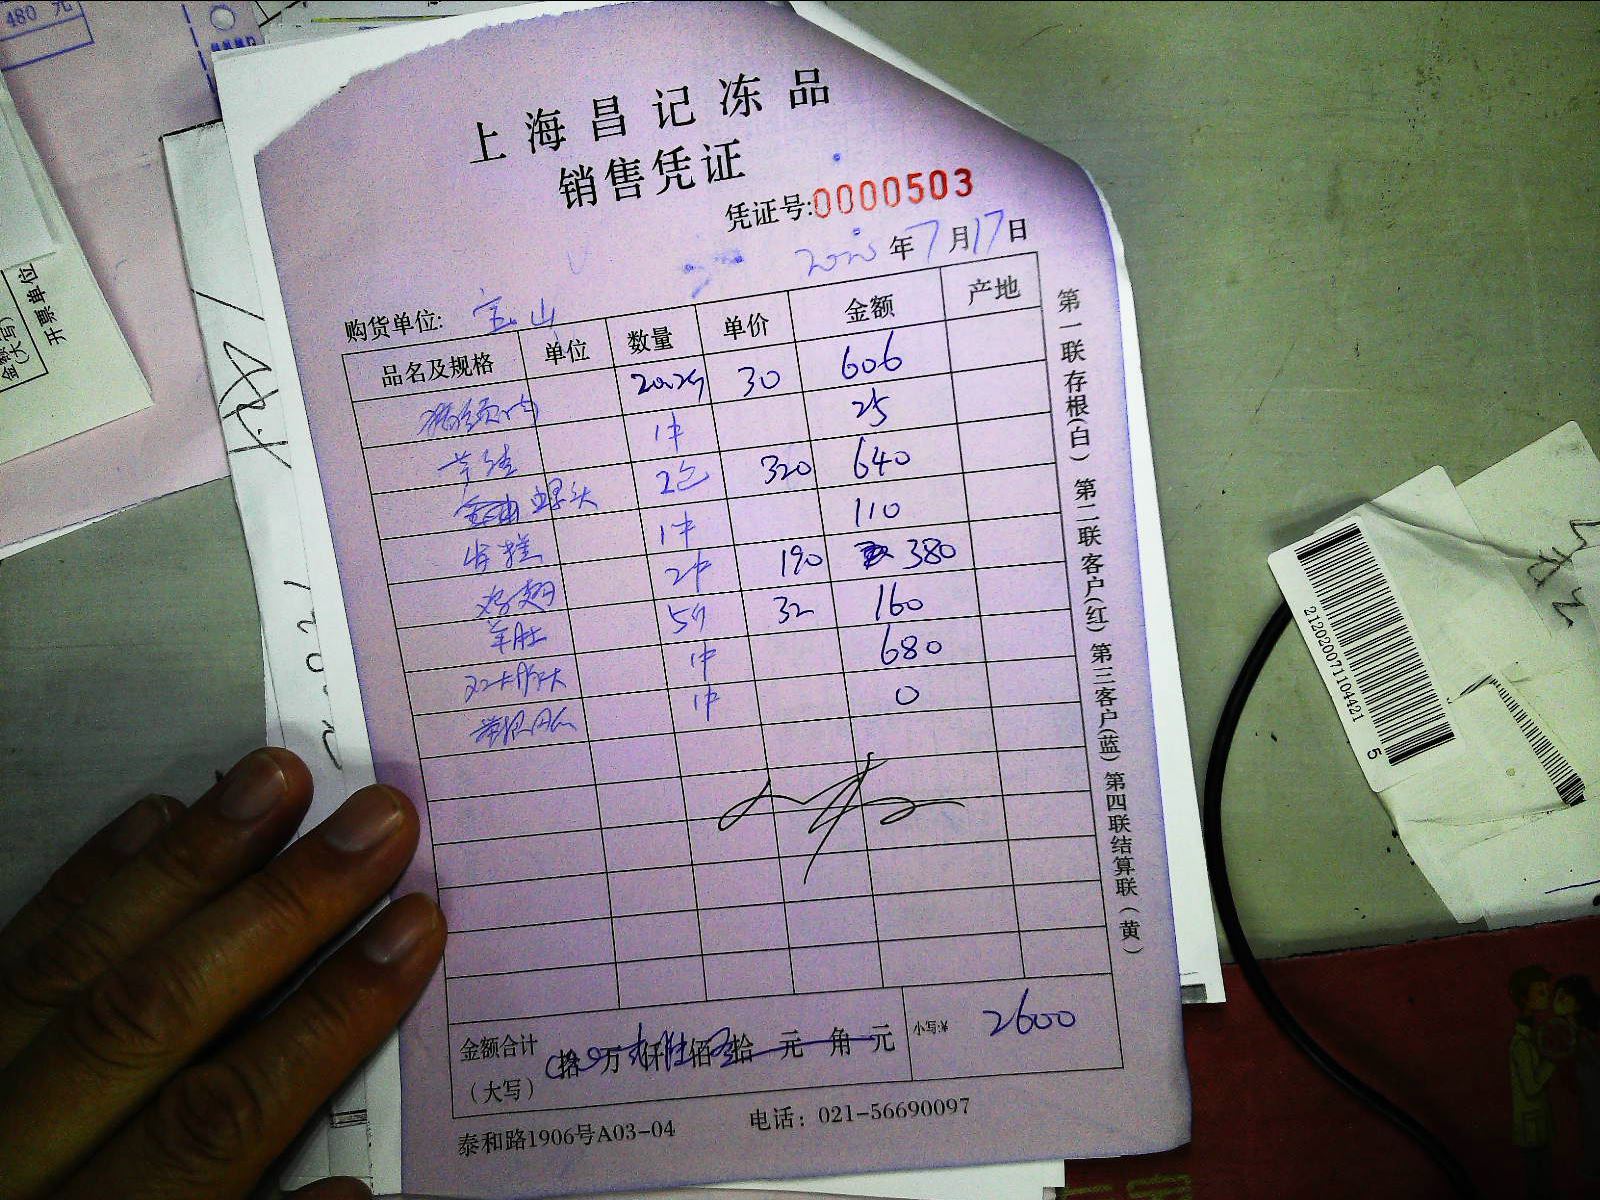 480 元
上海昌记冻品
销售凭证
凭证号:0000503
2020年7月17日
购货单位: 宝山
品名及规格 单位 数量 单价 金额 产地
猪颈肉 20.2斤 30 606
1件 25
螺头 2包 320 640
1件 110
鸡翅 2件 190 380
羊肚 5斤 32 160
1件 680
1件 0
金额合计(大写) 拾 万 仟 佰 拾 元 角 元 小写:¥ 2600
泰和路1906号A03-04 电话: 021-56690097
第一联存根(白) 第二联客户(红) 第三客户(蓝) 第四联结算联(黄)
开票单位
2120200711044215